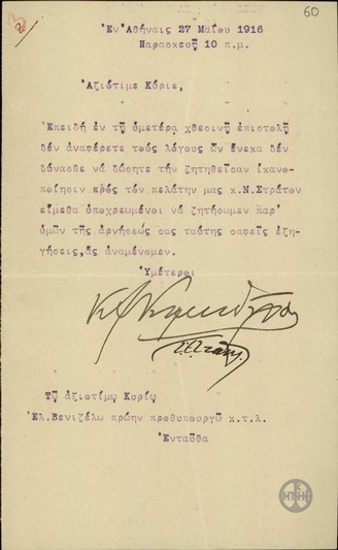 60
Ἐν Ἀθήναις 27 Μαΐου 1916
Παρασκευῇ 10 π.μ.
Ἀξιότιμε Κύριε,
Ἐπειδή ἐν τῇ ὑμετέρᾳ χθεσινῇ ἐπιστολῇ
δέν ἀναφέρετε τούς λόγους ὧν ἕνεκα δέν
δύνασθε νά δώσητε τήν ζητηθεῖσαν ἱκανο-
ποίησιν πρός τόν πελάτην μας κ.Ν.Στράτον
εἴμεθα ὑποχρεωμένοι νά ζητήσωμεν παρ'
ὑμῶν τῆς ἀρνήσεώς σας ταύτης σαφεῖς ἐξη-
γήσεις, ἅς ἀναμένομεν.
Ὑμέτεροι
Τῷ ἀξιοτίμῳ Κυρίῳ
Ἐλ.Βενιζέλῳ πρώην πρθυπουργῷ κ.τ.λ.
Ἐνταῦθα